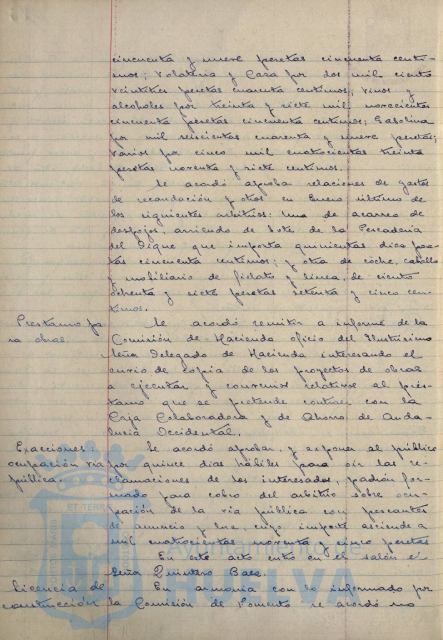 cincuenta y nueve pesetas cincuenta centi-
mos; Volatería y Caza por dos mil ciento
veintitres pesetas cuarenta centimos; vinos y
alcoholes por treinta y siete mil novecientas
cincuenta pesetas cincuenta centimos; Gasolina
por mil seiscientas cuarenta y nueve pesetas;
varios por cinco mil cuatrocientas treinta
pesetas noventa y siete centimos.
Se acordó aprobar relaciones de gastos
de recaudación y otros en Enero último de
los siguientes arbitrios: Una de acarreo de
despojos, arriendo de bote de la Pescadería
del Dique que importa quinientas diez pese-
tas cincuenta centimos; y otra de coche, caballo
y mobiliario de fielato y línea, de ciento
ochenta y siete pesetas setenta y cinco cen-
timos.
Prestamo pa
ra obras.
Se acordó remitir a informe de la
Comisión de Hacienda oficio del Ilustrísimo
Señor Delegado de Hacienda interesando el
envío de copia de los proyectos de obras
a ejecutar y convenios relativos al prés-
tamo que se pretende contraer con la
Caja Colaboradora y de Ahorro de Anda-
lucía Occidental.
Exacciones:
ocupación vía
pública.
Se acordó aprobar, y exponer al público
por quince días hábiles para oir las re-
clamaciones de los interesados, padrón for-
mado para cobro del arbitrio sobre ocu-
pación de la vía pública con pescantes
de anuncio y luz, cuyo importe asciende a
mil cuatrocientas noventa y cinco pesetas
En este acto entró en el salón el
Señor Quintero Baez.
licencia de
construcción
En armonía con lo informado por
la Comisión de Fomento se acordó no
HUELVA